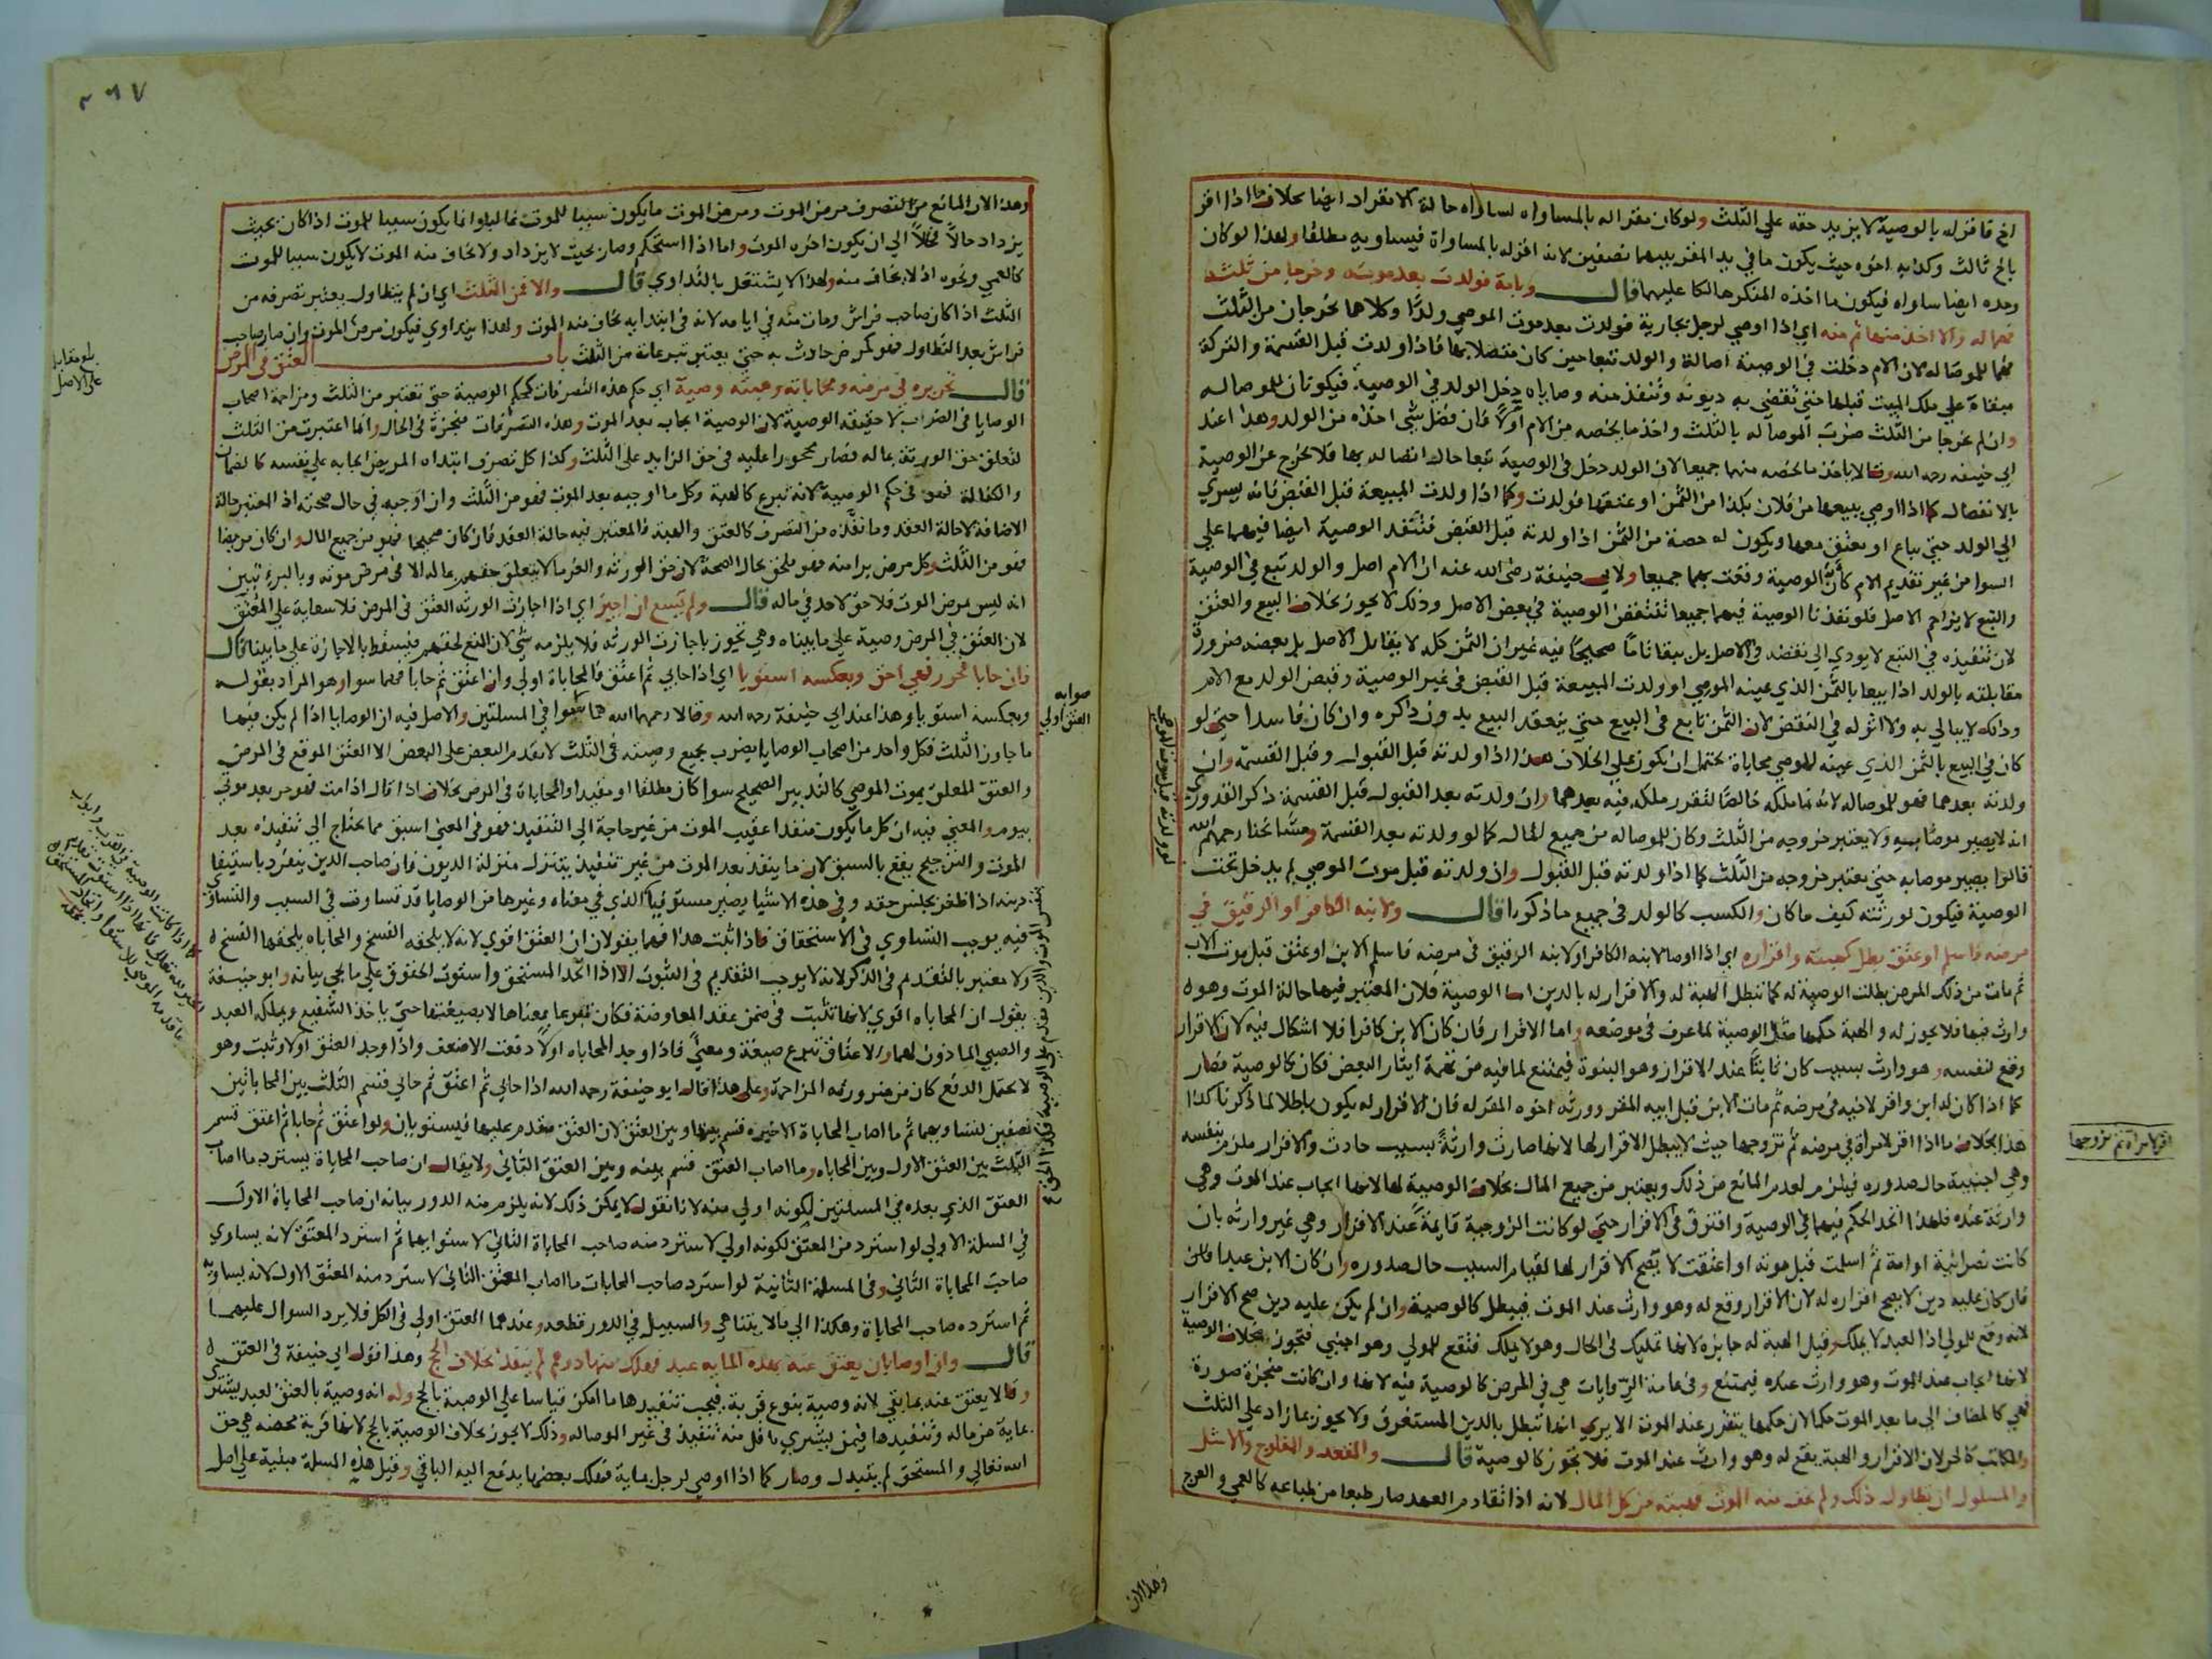 اخ فاقر له بالوصية لا يزيد حقه على الثلث ولو كان مقرا له بالمساواه لساواه حالة الانفراد ايضا بخلاف ما اذا اقر
باخ ثالث وكذبه اخوه حيث يكون ما في يد المقر بينهما نصفين لانه اقر له بالمساواة فيساويه مطلقا ولهذا لو كان
وحده ايضا ساواه فيكون ما اخذه المنكر هالكا عليهما قال وبامة فولدت بعد موته وخرجا من ثلثه
فهما له والا اخذ منها ثم منه اي اذا اوصى لرجل بجارية فولدت بعد موت الموصي ولدًا وكلاهما يخرجان من الثلث
فهما للموصا له لان الام دخلت في الوصية اصالة والولد تبعا حين كان متصلا بها فاذا ولدت قبل القسمة والتركة
مبقاة على ملك الميت قبلها حتى تقضى به ديونه وتنفذ منه وصاياه دخل الولد في الوصية فيكونان للموصا له
وان لم يخرجا من الثلث ضرب الموصا له بالثلث واخذ ما يخصه من الام اولًا فان فضل شي اخذه من الولد وهذا عند
ابي حنيفه رحمه الله وقالا ياخذ ما يخصه منهما جميعا لان الولد دخل في الوصية تبعا حال اتصاله بها فلا يخرج عن الوصية
بالانفصال كما اذا اوصى ببيعها من فلان بكذا من الثمن او عتقها فولدت وكما اذا ولدت المبيعة قبل القبض فانه يسري
الى الولد حتى يباع او يعتق معها ويكون له حصة من الثمن اذا ولدته قبل القبض فتنفذ الوصية ايضا فيهما على
السوا من غير تقديم الام كأن الوصية وقعت بهما جميعا ولابي حنيفة رضى الله عنه ان الام اصل والولد تبع في الوصية
والتبع لا يزاحم الاصل فلو نفذنا الوصية فيهما جميعا تنتقض الوصية في بعض الاصل وذلك لا يجوز بخلاف البيع والعتق
لان تنفيذه في التبع لا يودي الى نقضه في الاصل بل يبقا تامًا صحيحًا فيه غير ان الثمن كله لا يقابل الاصل بل بعضه ضرورة
مقابلته بالولد اذا بيعا بالثمن الذي عينه الموصي او ولدت المبيعة قبل القبض في غير الوصية وقبض الولد مع الام
وذلك لا يبالي به ولا اثر له في النقض لان الثمن تابع في البيع حتى ينعقد البيع بدون ذكره وان كان فاسدا حتى لو
كان في البيع بالثمن الذي عينه الموصي محاباة يحتمل ان يكون على الخلاف هذا اذا ولدته قبل القبول وقبل القسمة وان
ولدته بعدهما فهو للموصا له لانه نما ملكه خالصًا لتقرر ملكه فيه بعدهما وان ولدته بعد القبول قبل القسمة ذكر القدوري
انه لا يصير موصًا به ولا يعتبر خروجه من الثلث وكان للموصا له من جميع المال كما لو ولدته بعد القسمة ومشايخنا رحمهم الله
قالوا يصير موصا به حتى يعتبر خروجه من الثلث كما اذا ولدته قبل القبول وان ولدته قبل موت الموصي لم يدخل تحت
الوصية فيكون لورثته كيف ما كان والكسب كالولد في جميع ما ذكرنا قال ولابنه الكافر او الرقيق في
مرضه فاسلم او عتق بطل كهبته واقراره اي اذا اوصا لابنه الكافر او لابنه الرقيق في مرضه فاسلم الابن او عتق قبل موت الاب
ثم مات من ذلك المرض بطلت الوصية له كما تبطل الهبة له والاقرار له بالدين اما الوصية فلان المعتبر فيها حالة الموت وهو
وارث فيها فلا يجوز له والهبة حكمها مثل الوصية لما عرف في موضعه واما الاقرار فان كان الابن كافرا فلا اشكال فيه لان الاقرار
وقع لنفسه وهو وارث بسبب كان ثابتًا عند الاقرار وهو البنوة فيمتنع لما فيه من تهمة ايثار البعض فكان كالوصية فصار
كما اذا كان له ابن واقر لاخيه في مرضه ثم مات الابن قبل ابيه المقر وورثه اخوه المقر له فان الاقرار له يكون باطلا لما ذكرنا كذا
هذا بخلاف ما اذا اقر لامراة في مرضه ثم تزوجها حيث لا يبطل الاقرار لها لانها صارت وارثةً بسبب حادث والاقرار ملزم بنفسه
وهي اجنبية حال صدوره فيلزم لعدم المانع من ذلك ويعتبر من جميع المال بخلاف الوصية لها لانها ايجاب عند الموت وهي
وارثة عنده فلهذا اتحد الحكم فيهما في الوصية وافترق في الاقرار حتى لو كانت الزوجية قايمةً عند الاقرار وهي غير وارثه بان
كانت نصرانية او امة ثم اسلمت قبل موته او اعتقت لا يصح الاقرار لها لقيام السبب حال صدوره وان كان الابن عبدا فان
فان كان عليه دين لا يصح اقراره له لان الاقرار وقع له وهو وارث عند الموت فيبطل كالوصية وان لم يكن عليه دين صح الاقرار
لانه وقع للمولى اذ العبد لا يملك وقيل الهبة له جايزه لانها تمليك في الحال وهو لا يملك فتقع للمولى وهو اجنبي فتجوز بخلاف الوصية
لانها ايجاب عند الموت وهو وارث عنده فيمتنع وفي عامة الروايات هي في المرض كالوصية فيه لانها وان كانت منجزة صورة
فهي كالمضاف الى ما بعد الموت حكما لان حكمها يتقرر عند الموت الا يرى انها تبطل بالدين المستغرق ولا يجوز بما زاد على الثلث
والمكاتب كالحر لان الاقرار والهبة يقع له وهو وارث عند الموت فلا تجوز كالوصية قال والمقعد والمفلوج والاشل
والمسلول ان تطاول ذلك ولم يخف منه الموت فهبته من كل المال لانه اذا تقادم العهد صار طبعا من طباعه كالعمى والعرج
لو ولدته قبل موت الموصي
اقر لامراة ثم تزوجها
وهذا لان
٢٦٧
وهذا لان المانع من التصرف مرض الموت ومرض الموت ما يكون سببا للموت غالبا وانما يكون سببا للموت اذا كان بحيث
يزداد حالًا فحالًا الى ان يكون اخره الموت واما اذا استحكم وصار بحيث لا يزداد ولا يخاف منه الموت لا يكون سببا للموت
كالعمي ونحوه اذ لا يخاف منه ولهذا لا يشتغل بالتداوي قال والا فمن الثلث اي ان لم يتطاول يعتبر تصرفه من
الثلث اذا كان صاحب فراش ومات منه في ايامه لانه في ابتدايه يخاف منه الموت ولهذا يتداوي فيكون مرض الموت وان صار صاحب
فراش بعد التطاول فهو كمرض حادث به حتى يعتبر تبرعاته من الثلث باب العتق في المرض
قال تحريره في مرضه ومحاباته وهبته وصية اي حكم هذه التصرفات كحكم الوصية حتى تعتبر من الثلث ومزاحمة اصحاب
الوصايا في الضرب لا حقيقه الوصية لان الوصية ايجاب بعد الموت وهذه التصرفات منجزة في الحال وانما اعتبرت من الثلث
لتعلق حق الورثة بماله فصار محجورا عليه في حق الزايد على الثلث وكذا كل تصرف ابتداه المريض ايجابه على نفسه كالضمان
والكفالة فهو في حكم الوصية لانه تبرع كالهبة وكل ما اوجبه بعد الموت فهو من الثلث وان اوجبه في حال صحته اذ المعتبر حالة
الاضافة لا حالة العقد وما نفذه من التصرف كالعتق والهبة فالمعتبر فيه حالة العقد فان كان صحيحا فهو من جميع المال وان كان مريضا
فهو من الثلث وكل مرض برا منه فهو ملحق بحال الصحة لان حق الورثه والغرما لا يتعلق حقهم بماله الا في مرض موته وبالبرء تبين
انه ليس بمرض الموت فلا حق لاحد في ماله قال ولم يسع ان اجيز اي اذا اجازت الورثه العتق في المرض فلا سعاية على المعتق
لان العتق في المرض وصية على ما بيناه وهي تجوز باجازت الورثه فلا يلزمه شي لان المنع لحقهم فيسقط بالاجازة على ما بينا قال
فان حابا فحرر فهي احق وبعكسه استويا اي اذا حابى ثم اعتق فالمحاباة اولى وان اعتق ثم حابا فهما سوا وهو المراد بقوله
وبعكسه استويا وهذا عند ابي حنيفة رحمه الله وقالا رحمهما الله هما سوا في المسلتين والاصل فيه ان الوصايا اذا لم يكن فيها
ما جاوز الثلث فكل واحد من اصحاب الوصايا يضرب بجميع وصيته في الثلث لا يقدم البعض على البعض الا العتق الموقع في المرض
والعتق المعلق بموت الموصي كالتدبير الصحيح سوا كان مطلقا او مقيدا والمحاباة في المرض بخلاف اذا قال اذا مت فهو حر بعد موتي
بيوم والمعنى فيه ان كل ما يكون منفذا عقيب الموت من غير حاجة الى التنفيذ فهو في المعنى اسبق مما يحتاج الى تنفيذه بعد
الموت والترجيح يقع بالسبق لان ما ينفذ بعد الموت من غير تنفيذ يتنزل منزلة الديون فان صاحب الدين ينفرد باستيفا
دينه اذا ظفر بجنس حقه وفي هذه الاشيا يصير مستوفيا الذي في معناه وغيرها من الوصايا قد تساوت في السبب والتساوي
فيه يوجب التساوي في الاستحقاق فاذا ثبت هذا فهما يقولان ان العتق اقوي لانه لا يلحقه الفسخ والمحاباه يلحقها الفسخ
ولا معتبر بالتقديم في الذكر لانه لا يوجب التقديم في الثبوت الا اذا اتحد المستحق واستوت الحقوق على ما يجي بيانه وابو حنيفة
يقول ان المحاباه اقوي لانها تثبت في ضمن عقد المعاوضة فكان تبرعا بمعناها لا بصيغتها حتى ياخذ الشفيع ويملكه العبد
والصبي الماذون لهما والاعتاق تبرع صيغة ومعنًى فاذا وجد المحاباه اولًا دفعت الاضعف واذا وجد العتق اولا وثبت وهو
لا يحتمل الدفع كان من ضرورته المزاحمة وعلى هذا قال ابو حنيفة رحمه الله اذا حابى ثم اعتق ثم حابى قسم الثلث بين المحاباتين
نصفين لتساويهما ثم ما اصاب المحاباة الاخيره قسم بينها وبين العتق لان العتق مقدم عليها فيستويان ولو اعتق ثم حابا ثم اعتق قسم
الثلث بين العتق الاول وبين المحاباه وما اصاب العتق قسم بينه وبين العتق الثاني ولا يقال ان صاحب المحاباة يسترد ما اصاب
العتق الذي بعده في المسلتين لكونه اولى منه لانا نقول لا يمكن ذلك لانه يلزم منه الدور بيانه ان صاحب المحاباة الاول
في المسلة الاولى لو استرد من المعتق لكونه اولى لاسترد منه صاحب المحاباة الثاني لاستوايهما ثم استرد المعتق لانه يساوي
صاحب المحاباة الثاني وفي المسلة الثانية لو استرد صاحب المحابات ما اصاب المعتق الثاني لاسترد منه المعتق الاول لانه يساويه
ثم استرده صاحب المحاباة وهكذا الى ما لا يتناهي والسبيل في الدور قطعه وعندهما العتق اولى في الكل فلا يرد السوال عليهما
قال وان اوصا بان يعتق عنه بهذه المايه عبد فهلك منها درهم لم ينفذ بخلاف الحج وهذا قول ابي حنيفة في العتق
وقالا يعتق عنه بما بقي لانه وصية بنوع قربة فيجب تنفيذها ما امكن قياسا على الوصية بالحج وله انه وصية بالعتق لعبد يشترى
بماية من ماله وتنفيذها فيمن يشتري باقل منه تنفيذ في غير الموصا له وذلك لا يجوز بخلاف الوصية بالحج لانها قربة محضه هي حق
الله تعالى والمستحق لم يتبدل وصار كما اذا اوصى لرجل بماية فهلك بعضها يدفع اليه الباقي وقيل هذه المسلة مبنية على اصل
بلغ مقابلة
على الاصل
صوابه
العتق اولى